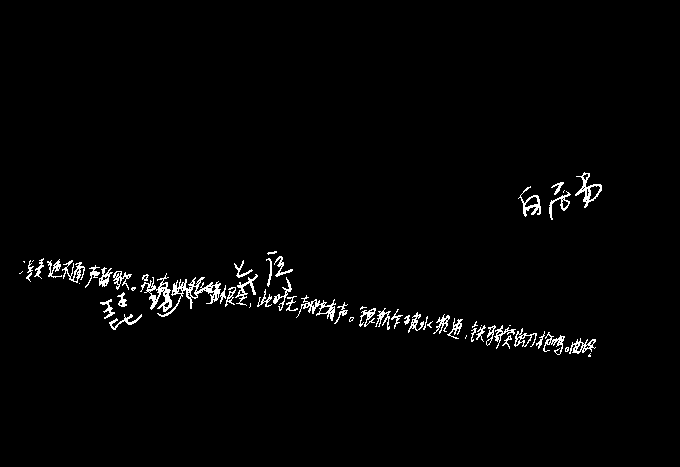 白居易
琵琶行 并序
凝绝不通声暂歇。别有幽愁暗恨生,此时无声胜有声。银瓶乍破水浆迸,铁骑突出刀枪鸣。曲终